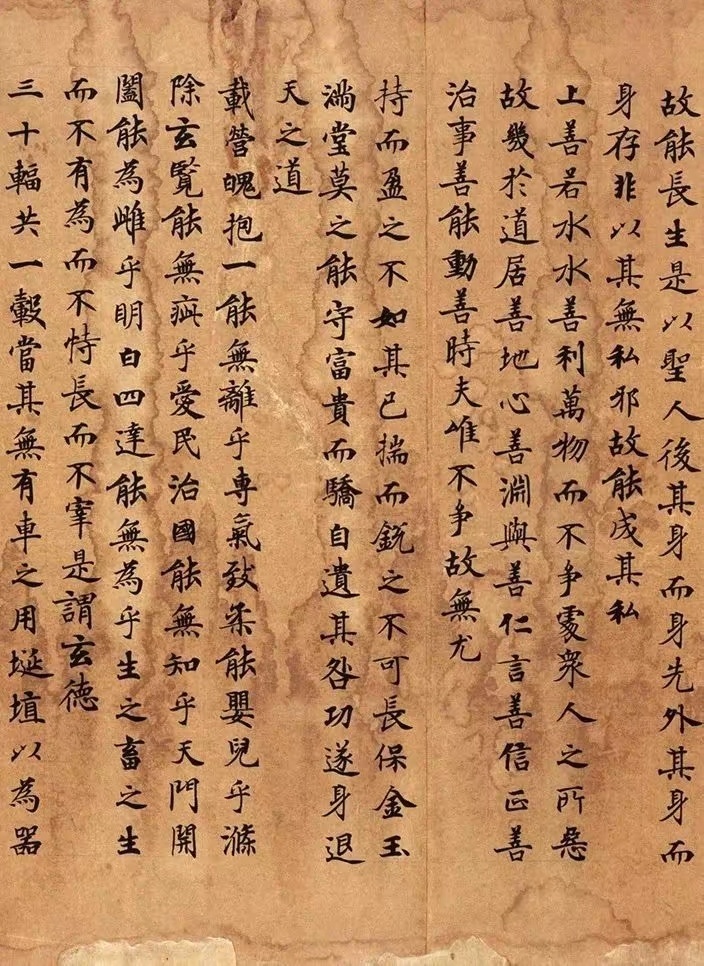 故能長生是以聖人後其身而身先外其身而
身存非以其無私邪故能成其私
上善若水水善利萬物而不争處衆人之所惡
故幾於道居善地心善淵與善仁言善信正善
治事善能動善時夫唯不争故無尤
持而盈之不如其已揣而銳之不可長保金玉
滿堂莫之能守富貴而驕自遺其咎功遂身退
天之道
載營魄抱一能無離乎専氣致柔能嬰兒乎滌
除玄覽能無疵乎愛民治國能無知乎天門開
闔能為雌乎明白四達能無為乎生之畜之生
而不有為而不恃長而不宰是謂玄德
三十輻共一轂當其無有車之用埏埴以為器